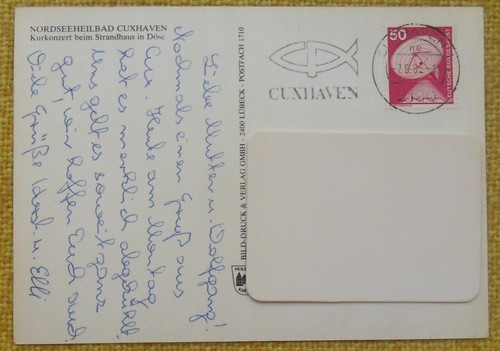 NORDSEEHEILBAD CUXHAVEN
Kurkonzert beim Strandhaus in Döse
Liebe Mutter u. Wolfgang!
Nochmals einen Gruß aus
Cux. Heute am Montag
hat es merklich abgekühlt.
Uns geht es soweit ganz
gut, wir hoffen Euch auch
Liebe Grüße u. Elli
BILD-DRUCK & VERLAG GMBH · 2400 LÜBECK · POSTFACH 1710
CUXHAVEN
50
DEUTSCHE BUNDESPOST